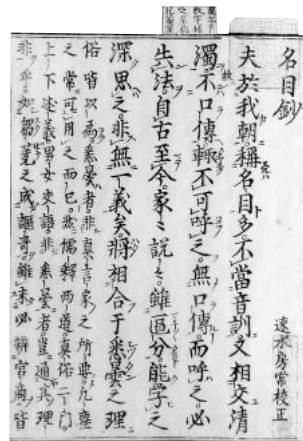 名目鈔
速水房常校正
夫於我朝稱名目多不當音訓又相交清
濁故不口傳輙不可呼之無口傳而呼之必
失法自古至今家々説々雖區分能學之
深思之非無一義矣將相合于悉曇之理
俗皆以爲悉曇者非真言家之所要凡塵
之常可用之而已然儒釋兩道真俗二門
上下述義男女吏語非悉曇者豈通其理
非乎如蒭蕘之成謳哥雖未必辨宮商皆